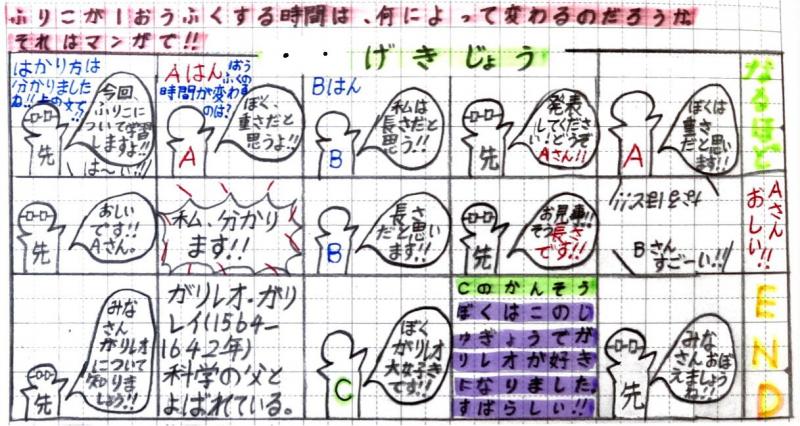 ふりこが1おうふくする時間は、何によって変わるのだろうか。
それはマンガで!!
・・げきじょう
なるほど
はかり方は
分かりました
ね!!上の文で!!
今回、
ふりこに
ついて学習
しますよ!!
はーい!!
先
Aはん
おう
ふくの
時間が変わる
のは?
ぼく、
重さだと
思うよ!!
A
Bはん
私は
長さだと
思う!!
B
発表
してくださ
い!どうぞ
Aさん!!
先
ぼくは
重さ
だと思い
ます!!
A
おしい
です!!
Aさん。
先
私、分かり
ます!!
長さ
だと思い
ます!!
B
お見事!!
そう長さ
です!!
先
Bさん
すごーい!!
Aさん
おしい!!
みな
さん
ガリレオ
について
知りま
しょう!!
先
ガリレオ・ガリ
レイ(1564-
1642年)
科学の父と
よばれている。
ぼく
ガリレオ
大好き
です!!
C
Cのかんそう
ぼくはこのじ
ゅぎょうでガ
リレオが好き
になりました。
すばらしい!!
みな
さんおぼ
えましょう
ね!!
先
END